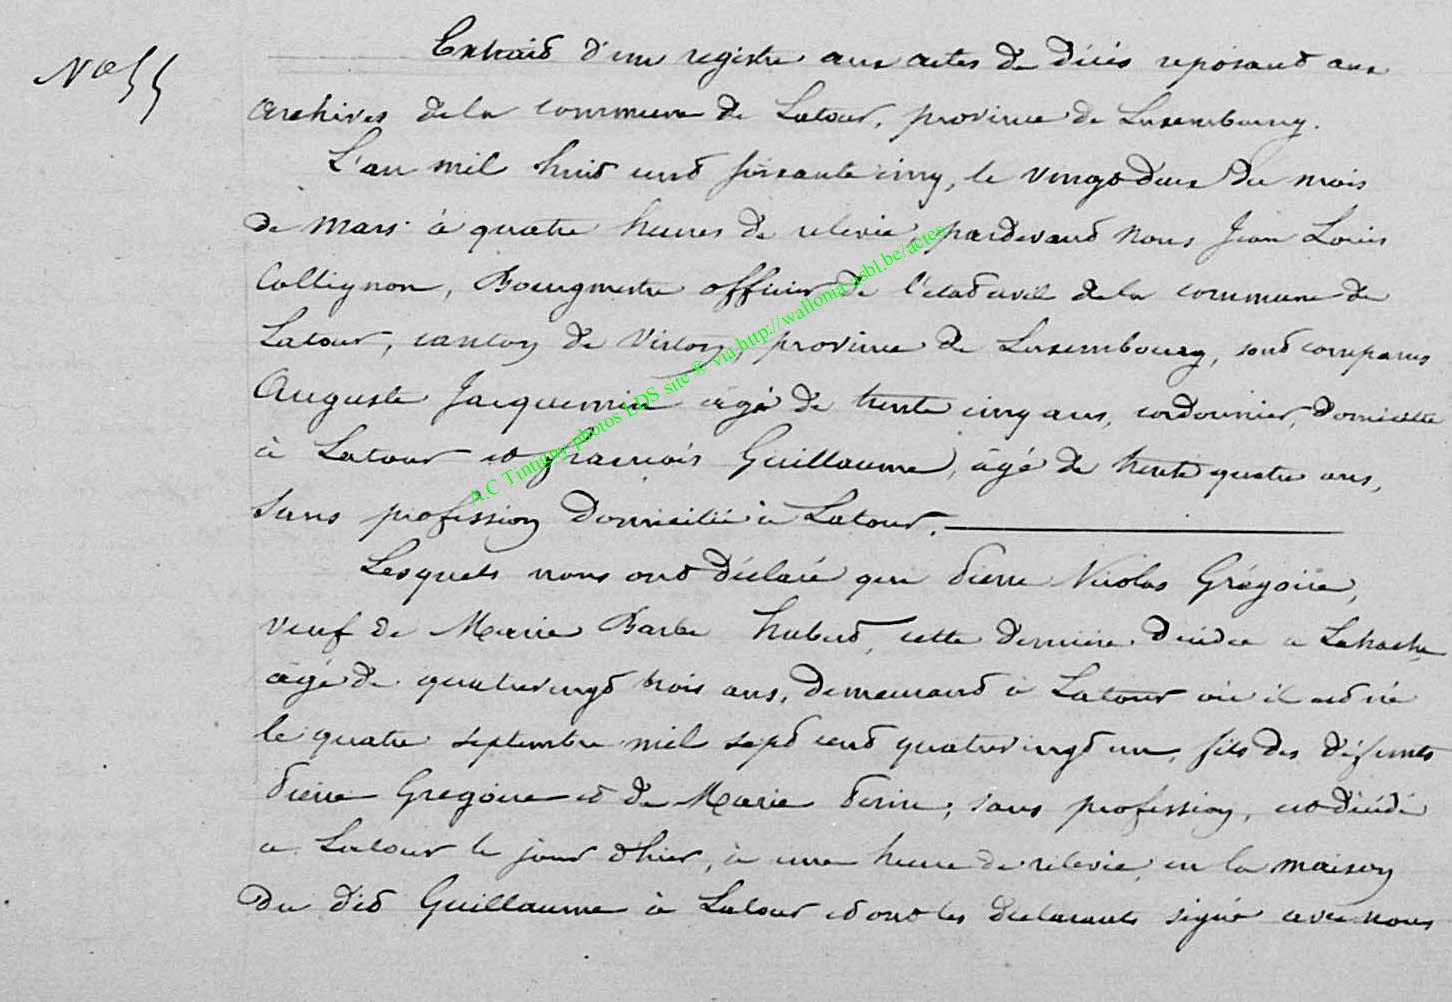 N° 55
Extrait d'un registre aux actes de décès reposant aux
archives de la commune de Latour, province de Luxembourg.
L'an mil huit cent soixante cinq, le vingt deux du mois
de Mars à quatre heures de relevée, pardevant nous Jean Louis
Collignon, Bourgmestre officier de l'état civil de la commune de
Latour, canton de Virton, province de Luxembourg, sont comparus
Auguste Jacquemin âgé de trente cinq ans, cordonnier, domicilié
à Latour et françois Guillaume, âgé de trente quatre ans,
sans profession domicilié à Latour.
Lesquels nous ont déclaré que Pierre Nicolas Grégoire,
veuf de Marie Barbe hubert, cette dernière décédée a Lahache
âgé de quatrevingt trois ans, demeurant à Latour où il est né
le quatre septembre mil sept cent quatrevingt un, fils des défunts
Pierre Gregoire et de Marie, sans profession, est décédé
a Latour le jour d'hier, à une heure de relevée, en la maison
du dit Guillaume à Latour et ont les déclarants signé avec nous
A.C Tintigny photos LDS site ® via http://wallonia-asbl.be/actes